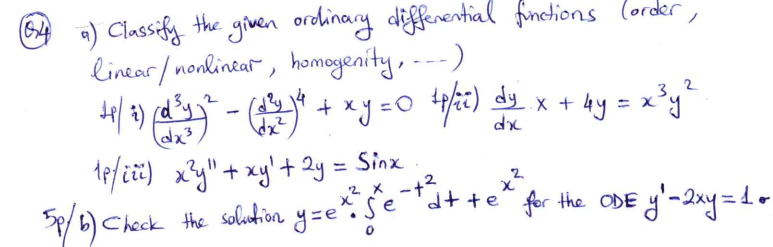 Q4 a) Classify the given ordinary differential functions (order,
linear/nonlinear, homogenity, ---)
1p/ i) (d³y/dx³)² - (d²y/dx²)⁴ + xy = 0 1p/ii) dy/dx x + 4y = x³y²
1p/iii) x²y'' + xy' + 2y = Sinx
5p/ b) Check the solution y = e^x² . ∫₀ˣ e^-t² dt + e^x² for the ODE y' - 2xy = 1.